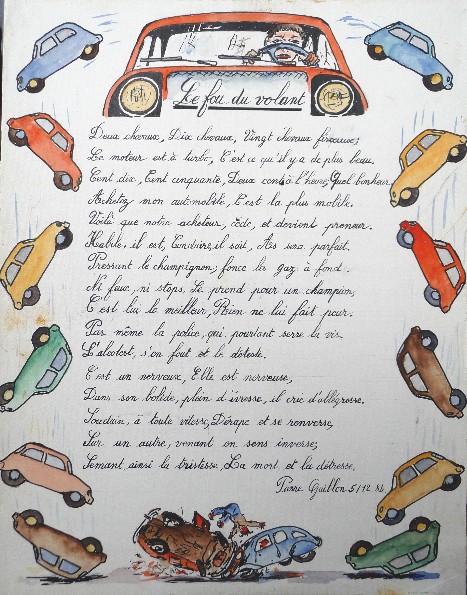 Le fou du volant
Deux chevaux, Dix chevaux, Vingt chevaux fiscaux;
Le moteur est à turbo, C'est ce qu'il y a de plus beau,
Cent dix, Cent cinquante, Deux cents à l'heure, Quel bonheur.
Achetez mon automobile, C'est la plus mobile.
Voilà que notre acheteur, cède, et devient preneur.
Habile, il est, Conduire, il sait, As sera parfait.
Pressant le champignon, fonce les gaz à fond.
Ni feux, ni stops, Se prend pour un champion,
C'est lui le meilleur, Rien ne lui fait peur.
Pas même la police, qui, pourtant serre la vis
L'alcotest, s'en fout et le déteste.
C'est un nerveux, Elle est nerveuse,
Dans son bolide, plein d'ivresse, il crie d'allégresse.
Soudain, à toute vitesse, Dérape et se renverse,
Sur un autre, venant en sens inverse,
Semant, ainsi la tristesse, La mort et la détresse.
Pierre Guillon 5/12.84.